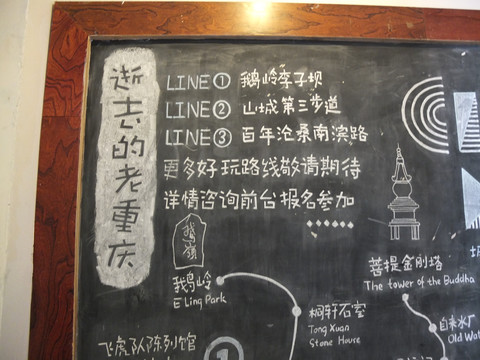 逝去的老重庆
LINE① 鹅岭李子坝
LINE② 山城第三步道
LINE③ 百年沧桑南滨路
更多好玩路线敬请期待
详情咨询前台报名参加
鹅岭
鹅岭
E Ling Park
桐轩石室
Tong Xuan
Stone House
菩提金刚塔
The tower of the Buddha
自来水厂
Old Wat
飞虎队陈列馆
①